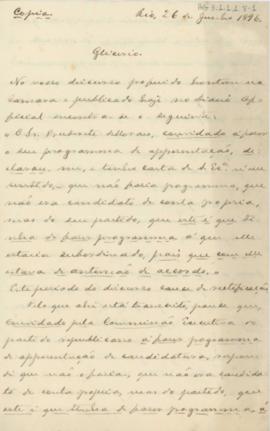 Copia
Rio, 26 de Junho 1896.
Glicerio.
No vosso discurso proferido hontem na
camara e publicado hoje no Diario Of-
ficial encontra-se o seguinte:
"O Sr. Prudente de Moraes, convidado a fazer
o seu programma de apresentação, de-
clarou-me, e tenho carta de S. Exª n'esse
sentido, — que não faria programma, que
não era candidato de conta propria,
mas do seu partido, que este é que ti-
nha de fazer programma á que elle
estaria subordinado, pois que com elle
estava de accordo."
Este periodo do discurso carece de rectificação
Pelo que ahi está transcripto, parece que,
convidado pela Commissão Executiva do
partido republicano a fazer programma
de apresentação de candidatura, respon-
di que não o faria, que não era candida-
to de conta propria, mas do partido, que
este é que tinha de fazer programma, á